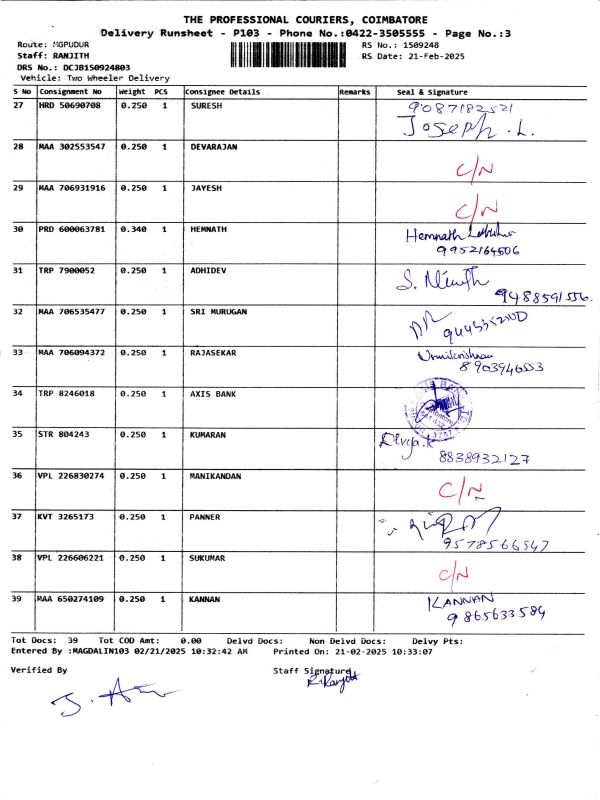 THE PROFESSIONAL COURIERS, COIMBATORE
Delivery Runsheet - P103 - Phone No.:0422-3505555 - Page No.:3
Route: MGPUDUR RS No.: 1509248
Staff: RANJITH RS Date: 21-Feb-2025
DRS No.: DCJB150924803
Vehicle: Two Wheeler Delivery
S No Consignment No Weight PCS Consignee Details Remarks Seal & Signature
27 HRD 50690708 0.250 1 SURESH 9087182521
Joseph .L.
28 MAA 302553547 0.250 1 DEVARAJAN C/N
29 MAA 706931916 0.250 1 JAYESH C/N
30 PRD 600063781 0.340 1 HEMNATH Hemnath
9952164606
31 TRP 7900052 0.250 1 ADHIDEV S.
9488591556.
32 MAA 706535477 0.250 1 SRI MURUGAN
33 MAA 706094372 0.250 1 RAJASEKAR
8903946553
34 TRP 8246018 0.250 1 AXIS BANK
35 STR 804243 0.250 1 KUMARAN Divya.k
8838932127
36 VPL 226830274 0.250 1 MANIKANDAN C/N
37 KVT 3265173 0.250 1 PANNER
9578566547
38 VPL 226606221 0.250 1 SUKUMAR C/N
39 MAA 650274109 0.250 1 KANNAN KANNAN
9865633584
Tot Docs: 39 Tot COD Amt: 0.00 Delvd Docs: Non Delvd Docs: Delvy Pts:
Entered By :MAGDALIN103 02/21/2025 10:32:42 AM Printed On: 21-02-2025 10:33:07
Verified By Staff Signature